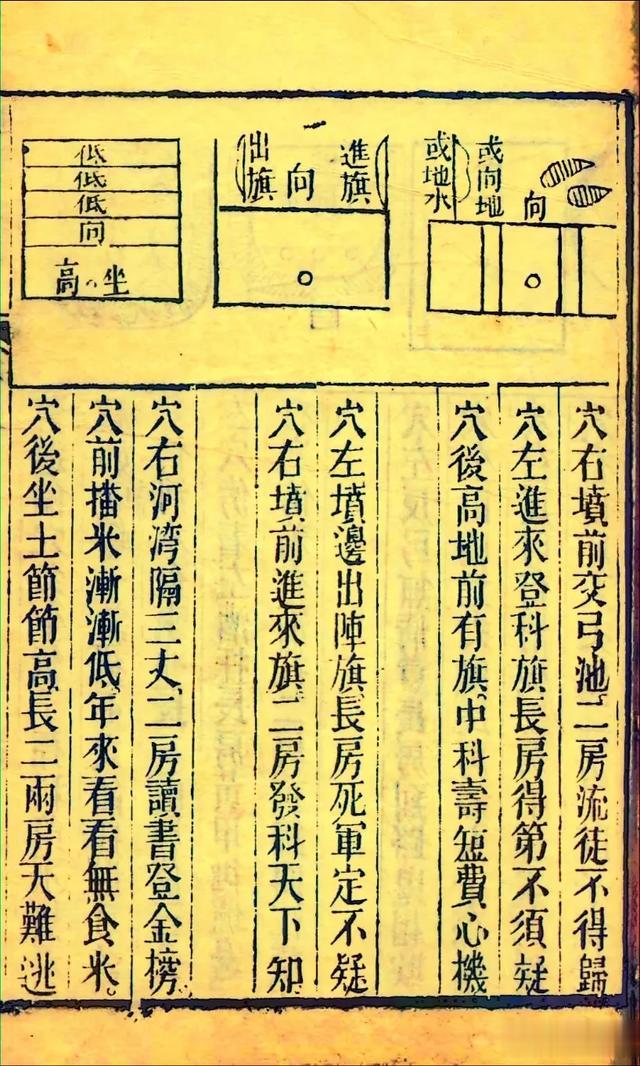 向
或向地
或地水
進旗
向
出旗
低
低
低
向
坐
高
穴右墳前交弓池二房流徒不得歸
穴左進來登科旗長房得第不須疑
穴後高地前有旗中科壽短費心機
穴左墳邊出陣旗長房死軍定不疑
穴右墳前進來旗二房發科天下知
穴右河湾隔三丈二房讀書登金榜
穴前播米漸漸低年來看看無食米。
穴後坐土節節高長二兩房天難逃